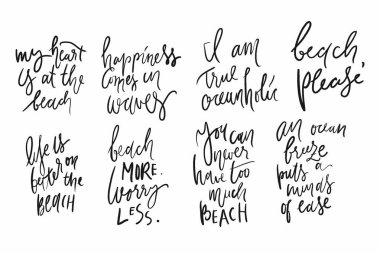 my heart
is at the
beach
happiness
comes in
waves
I am
true
oceanholic
beach
please
life is
better on
the
BEACH
beach
MORE.
worry
LESS.
you can
never
have too
much
BEACH
an ocean
breeze
puts a
minds
of ease